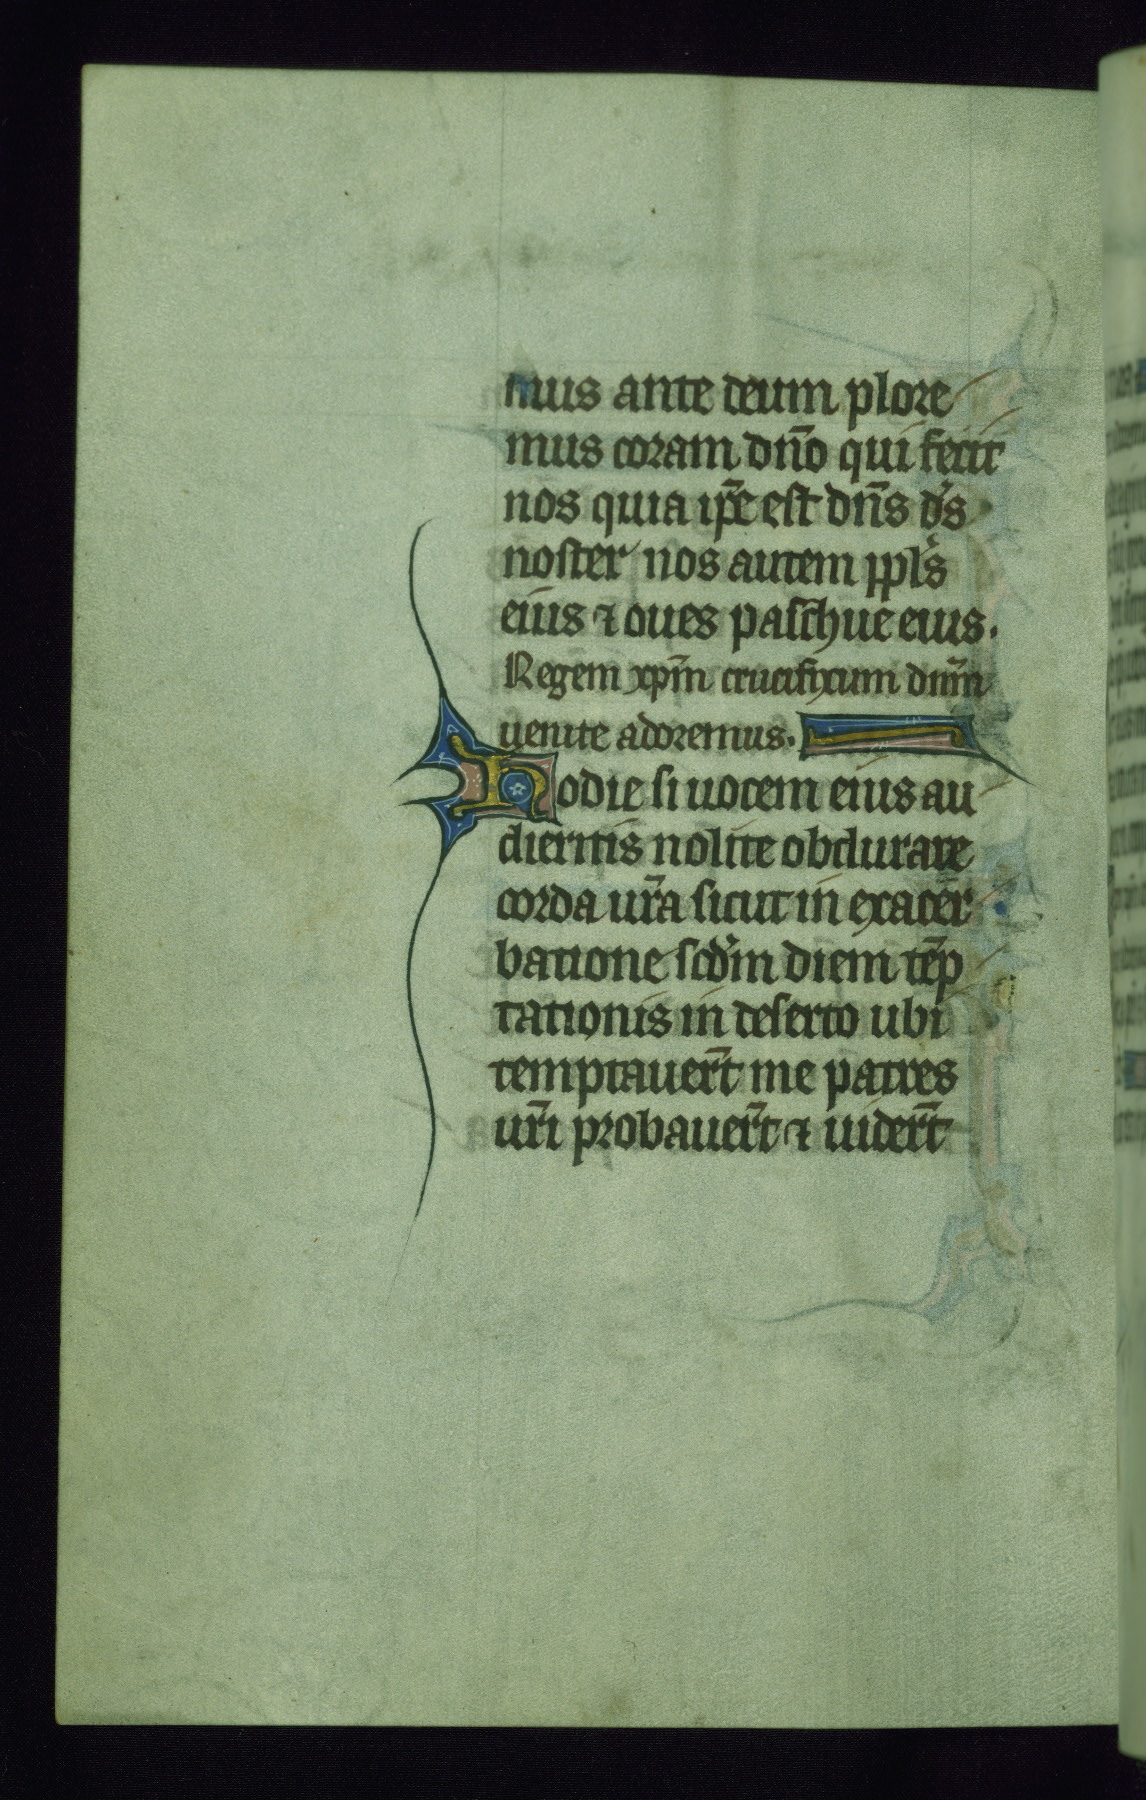 mus ante deum plore
mus coram dn̄o qui fecit
nos quia ip̄e est dn̄s ds̄
noster nos autem ppls̄
eius ⁊ oues paschue eius.
Regem xp̄m crucifixum dnm̄
uenite adoremus.
Hodie si uocem eius au
dieritis nolite obdurare
corda ur̄a sicut in exacer
batione scd̄m diem tēp
tationis in deserto ubi
temptauer̄t me patres
ur̄i probauer̄t ⁊ uider̄t